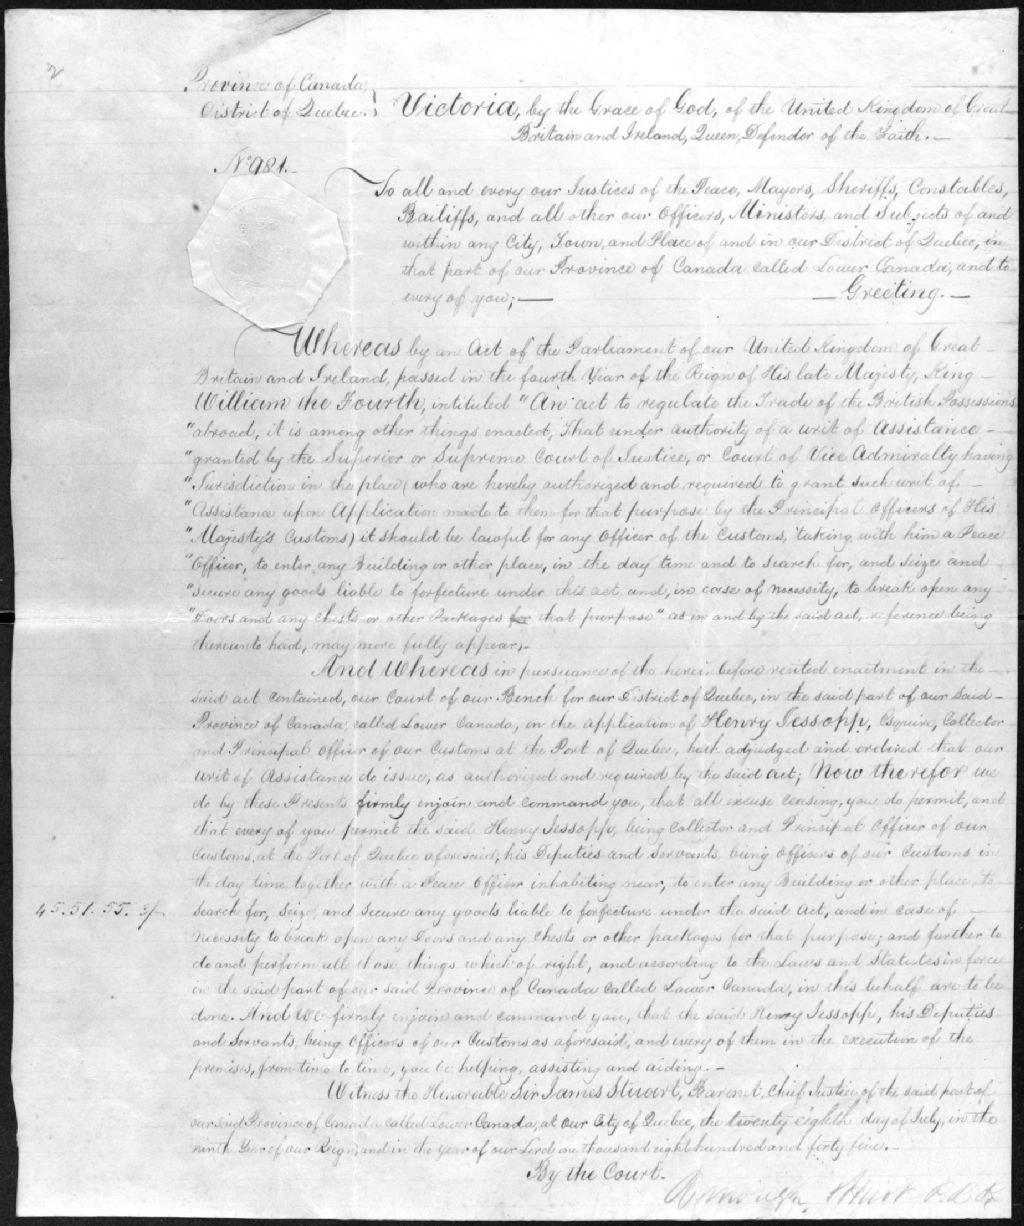 2
Province of Canada,
District of Quebec.
Victoria, by the Grace of God, of the United Kingdom of Great
Britain and Ireland, Queen, Defender of the Faith. —
No. 981. —
To all and every our Justices of the Peace, Mayors, Sheriffs, Constables,
Bailiffs, and all other our Officers, Ministers, and Subjects of and
within any City, Town, and Place of and in our District of Quebec, in
that part of our Province of Canada called Lower Canada, and to
every of you; — — Greeting. —
Whereas by an Act of the Parliament of our United Kingdom of Great
Britain and Ireland, passed in the fourth Year of the Reign of His late Majesty, King
William the Fourth, intituled "An act to regulate the Trade of the British Possessions
"abroad, it is among other things enacted, That under authority of a writ of Assistance —
"granted by the Superior or Supreme Court of Justice, or Court of Vice Admiralty having
"Jurisdiction in the place (who are hereby authorized and required to grant such writ of —
"Assistance upon Application made to them for that purpose by the Principal Officers of His
"Majesty's Customs) it should be lawful for any Officer of the Customs, taking with him a Peace
"Officer, to enter any Building or other place, in the day time and to search for, and seize and
"secure any goods liable to forfeiture under this act, and, in case of necessity, to break open any
"Doors and any Chests or other Packages for that purpose" as in and by the said act, reference being
thereunto had, may more fully appear, —
And Whereas in pursuance of the herein before recited enactment in the
said act contained, our Court of our Bench for our District of Quebec, in the said part of our said
Province of Canada, called Lower Canada, on the application of Henry Jessopp, Esquire, Collector
and Principal officer of our Customs at the Port of Quebec, hath adjudged and ordered that our
writ of Assistance do issue, as authorized and required by the said act; Now therefor we
do by these Presents firmly enjoin and command you, that all excuse ceasing, you do permit, and
that every of you permit the said Henry Jessopp, being Collector and Principal Officer of our
Customs, at the Port of Quebec aforesaid, his Deputies and Servants, being Officers of our Customs in
the day time together with a Peace Officer inhabiting near, to enter any Building or other place, to
45. 51. 55. 3/-
search for, seize, and secure any goods liable to forfeiture under the said Act, and in case of —
necessity to break open any Doors and any Chests or other packages for that purpose; and further to
do and perform all those things which of right, and according to the Laws and Statutes in force
in the said part of our said Province of Canada called Lower Canada, in this behalf are to be
done. And We firmly enjoin and command you, that the said Henry Jessopp, his Deputies
and Servants, being Officers of our Customs as aforesaid, and every of them in the execution of the
premises, from time to time, you be helping, assisting and aiding. —
Witness the Honorable Sir James Stuart, Baronet, Chief Justice of the said part of
our said Province of Canada called Lower Canada, at our City of Quebec, the twenty eighth day of July, in the
ninth Year of our Reign, and in the year of our Lord one thousand eight hundred and forty five. —
By the Court.